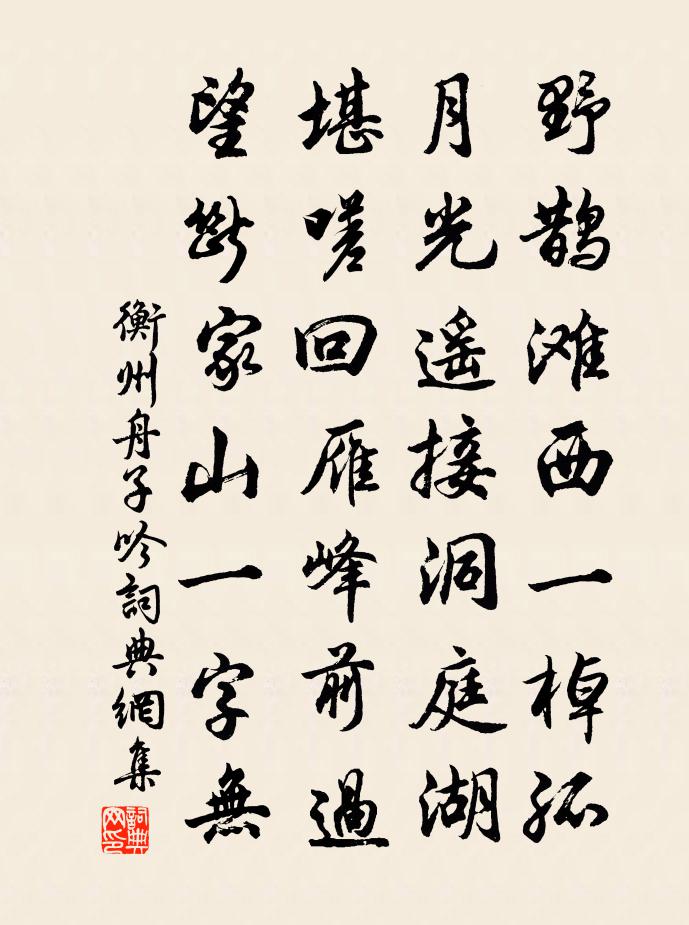 野鹊滩西一棹孤
月光遥接洞庭湖
堪嗟回雁峰前過
望斷家山一字無
衡州舟子吟詞典網集
詞典
网印